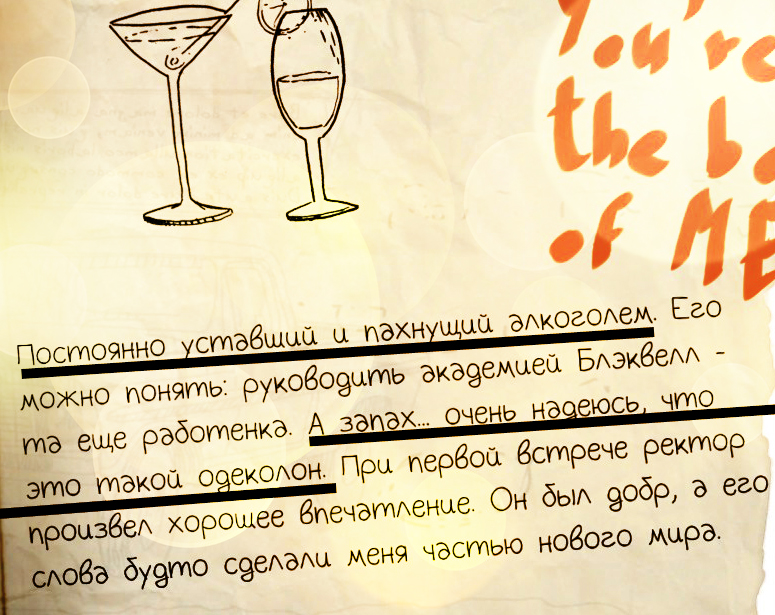 You're
the b
of ME
Постоянно уставший и пахнущий алкоголем. Его
можно понять: руководить академией Блэквелл -
та еще работенка. А запах... очень надеюсь, что
это такой одеколон. При первой встрече ректор
произвел хорошее впечатление. Он был добр, а его
слова будто сделали меня частью нового мира.